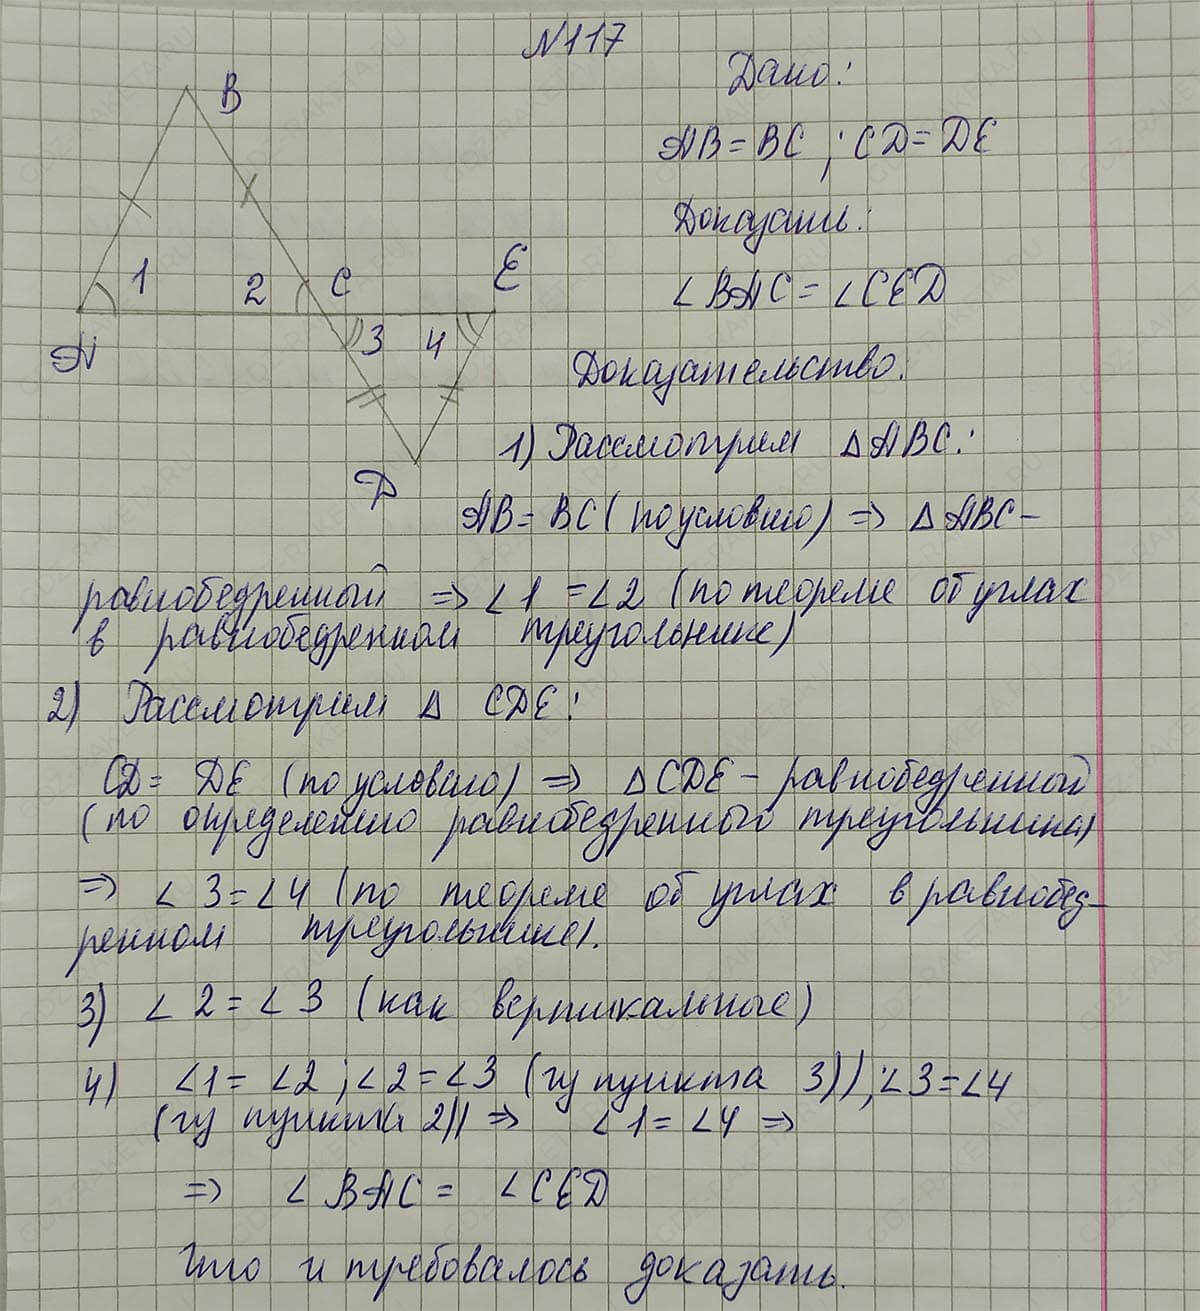 №117
B
Дано:
AB = BC ; CD = DE
Доказать:
∠BAC = ∠CED
1 2 C E
A 3 4
D
Доказательство:
1) Рассмотрим △ABC:
AB = BC (по условию) => △ABC –
равнобедренный => ∠1 = ∠2 (по теореме об углах
в равнобедренном треугольнике)
2) Рассмотрим △ CDE:
CD = DE (по условию) => △CDE – равнобедренный
(по определению равнобедренного треугольника)
=> ∠3 = ∠4 (по теореме об углах в равнобед-
ренном треугольнике).
3) ∠2 = ∠3 (как вертикальные)
4) ∠1 = ∠2 ; ∠2 = ∠3 (из пункта 3)) ; ∠3 = ∠4
(из пункта 2)) => ∠1 = ∠4 =>
=> ∠BAC = ∠CED
Что и требовалось доказать.